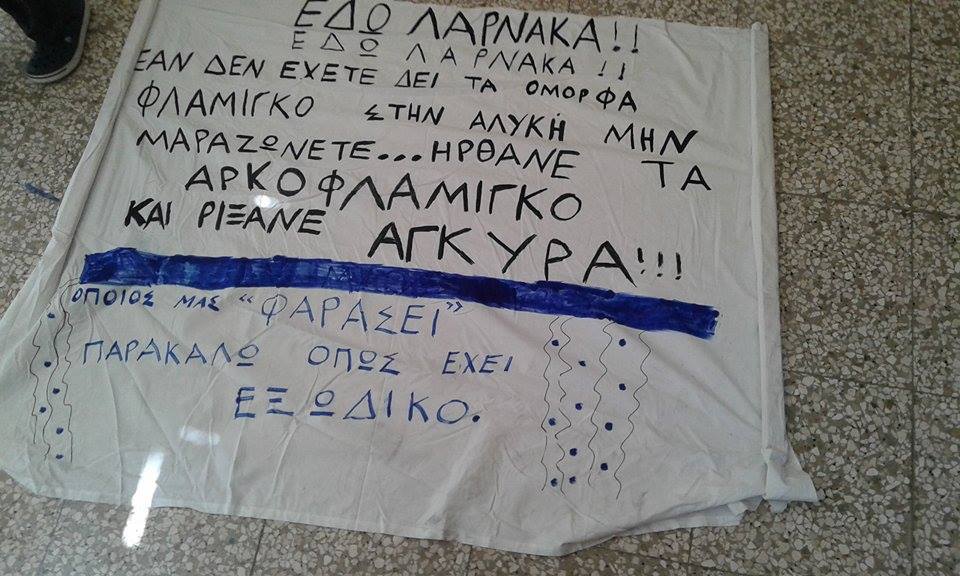 ΕΔΩ ΛΑΡΝΑΚΑ!!
ΕΔΩ ΛΑΡΝΑΚΑ!!
ΕΑΝ ΔΕΝ ΕΧΕΤΕ ΔΕΙ ΤΑ ΟΜΟΡΦΑ
ΦΛΑΜΙΓΚΟ ΣΤΗΝ ΑΛΥΚΗ ΜΗΝ
ΜΑΡΑΖΩΝΕΤΕ...ΗΡΘΑΝΕ ΤΑ
ΑΡΚΟΦΛΑΜΙΓΚΟ
ΚΑΙ ΡΙΞΑΝΕ ΑΓΚΥΡΑ!!!
ΟΠΟΙΟΣ ΜΑΣ "ΦΑΡΑΣΕΙ"
ΠΑΡΑΚΑΛΩ ΟΠΩΣ ΕΧΕΙ
ΕΞΩΔΙΚΟ.